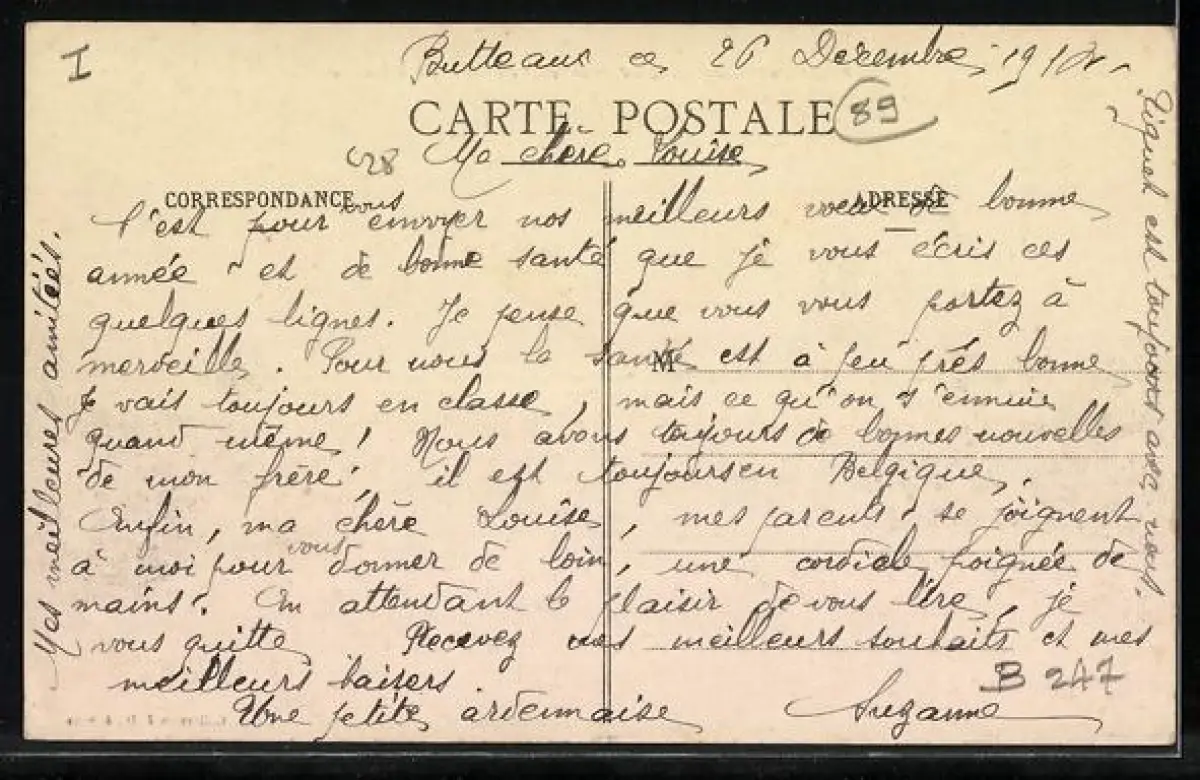 I
Butteaux ce 26 Décembre 191
CARTE POSTALE
89
628
Ma chère Louise,
CORRESPONDANCE
ADRESSE
C'est pour vous envoyer nos meilleurs voeux de bonne
année et de bonne santé que je vous écris ces
quelques lignes. Je pense que vous vous portez à
merveille. Pour nous la santé est à peu près bonne
M
Je vais toujours en classe, mais ce qu'on s'ennuie
quand même! Nous avons toujours de bonnes nouvelles
de mon frère; il est toujours en Belgique.
Enfin, ma chère Louise, mes parents se joignent
à moi pour vous donner de loin, une cordiale poignée de
mains. En attendant le plaisir de vous lire, je
vous quitte Recevez mes meilleurs souhaits et mes
meilleurs baisers.
B 247
Une petite ardennaise Suzanne
Mes meilleures amitiés.
est toujours avec nous.